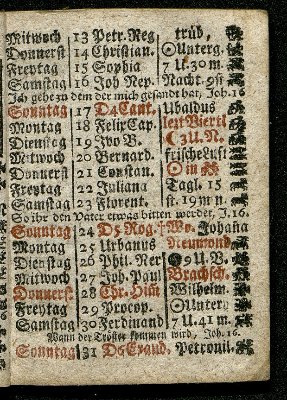 Mitwoch 13 Petr. Reg trüb,
Donnerst 14 Christian. ☉Unterg.
Freytag 15 Sophia 7 U. 30 m.
Samstag 16 Joh Nep. Nacht 9st
Ich gehe zu dem der mich gesandt hat, Joh. 16
Sonntag 17 D4 Cant. Ubaldus
Montag 18 Felix Cap. lezt Viertl
Dienstag 19 Ivo B. ☾3 U. N.
Mitwoch 20 Bernard. frische Luft
Donnerst 21 Constan. ☉ in
Freytag 22 Juliana Tagl. 15
Samstag 23 Florent. st. 19 m n.
So ihr den Vater etwas bitten werdet, J. 16.
Sonntag 24 D5 Rog. Johana
Montag 25 Urbanus Neumond
Dienstag 26 Phil. Ner 9 U. V.
Mitwoch 27 Joh. Pau Brachsch.
Donnerst 28 Chr. Him Wilhelm.
Freytag 29 Procop. ☉Unterg
Samstag 30 Ferdinand 7 U. 41 m.
Wann der Tröster kommen wird, Joh. 16.
Sonntag 31 D6 Exaud. Petronil.